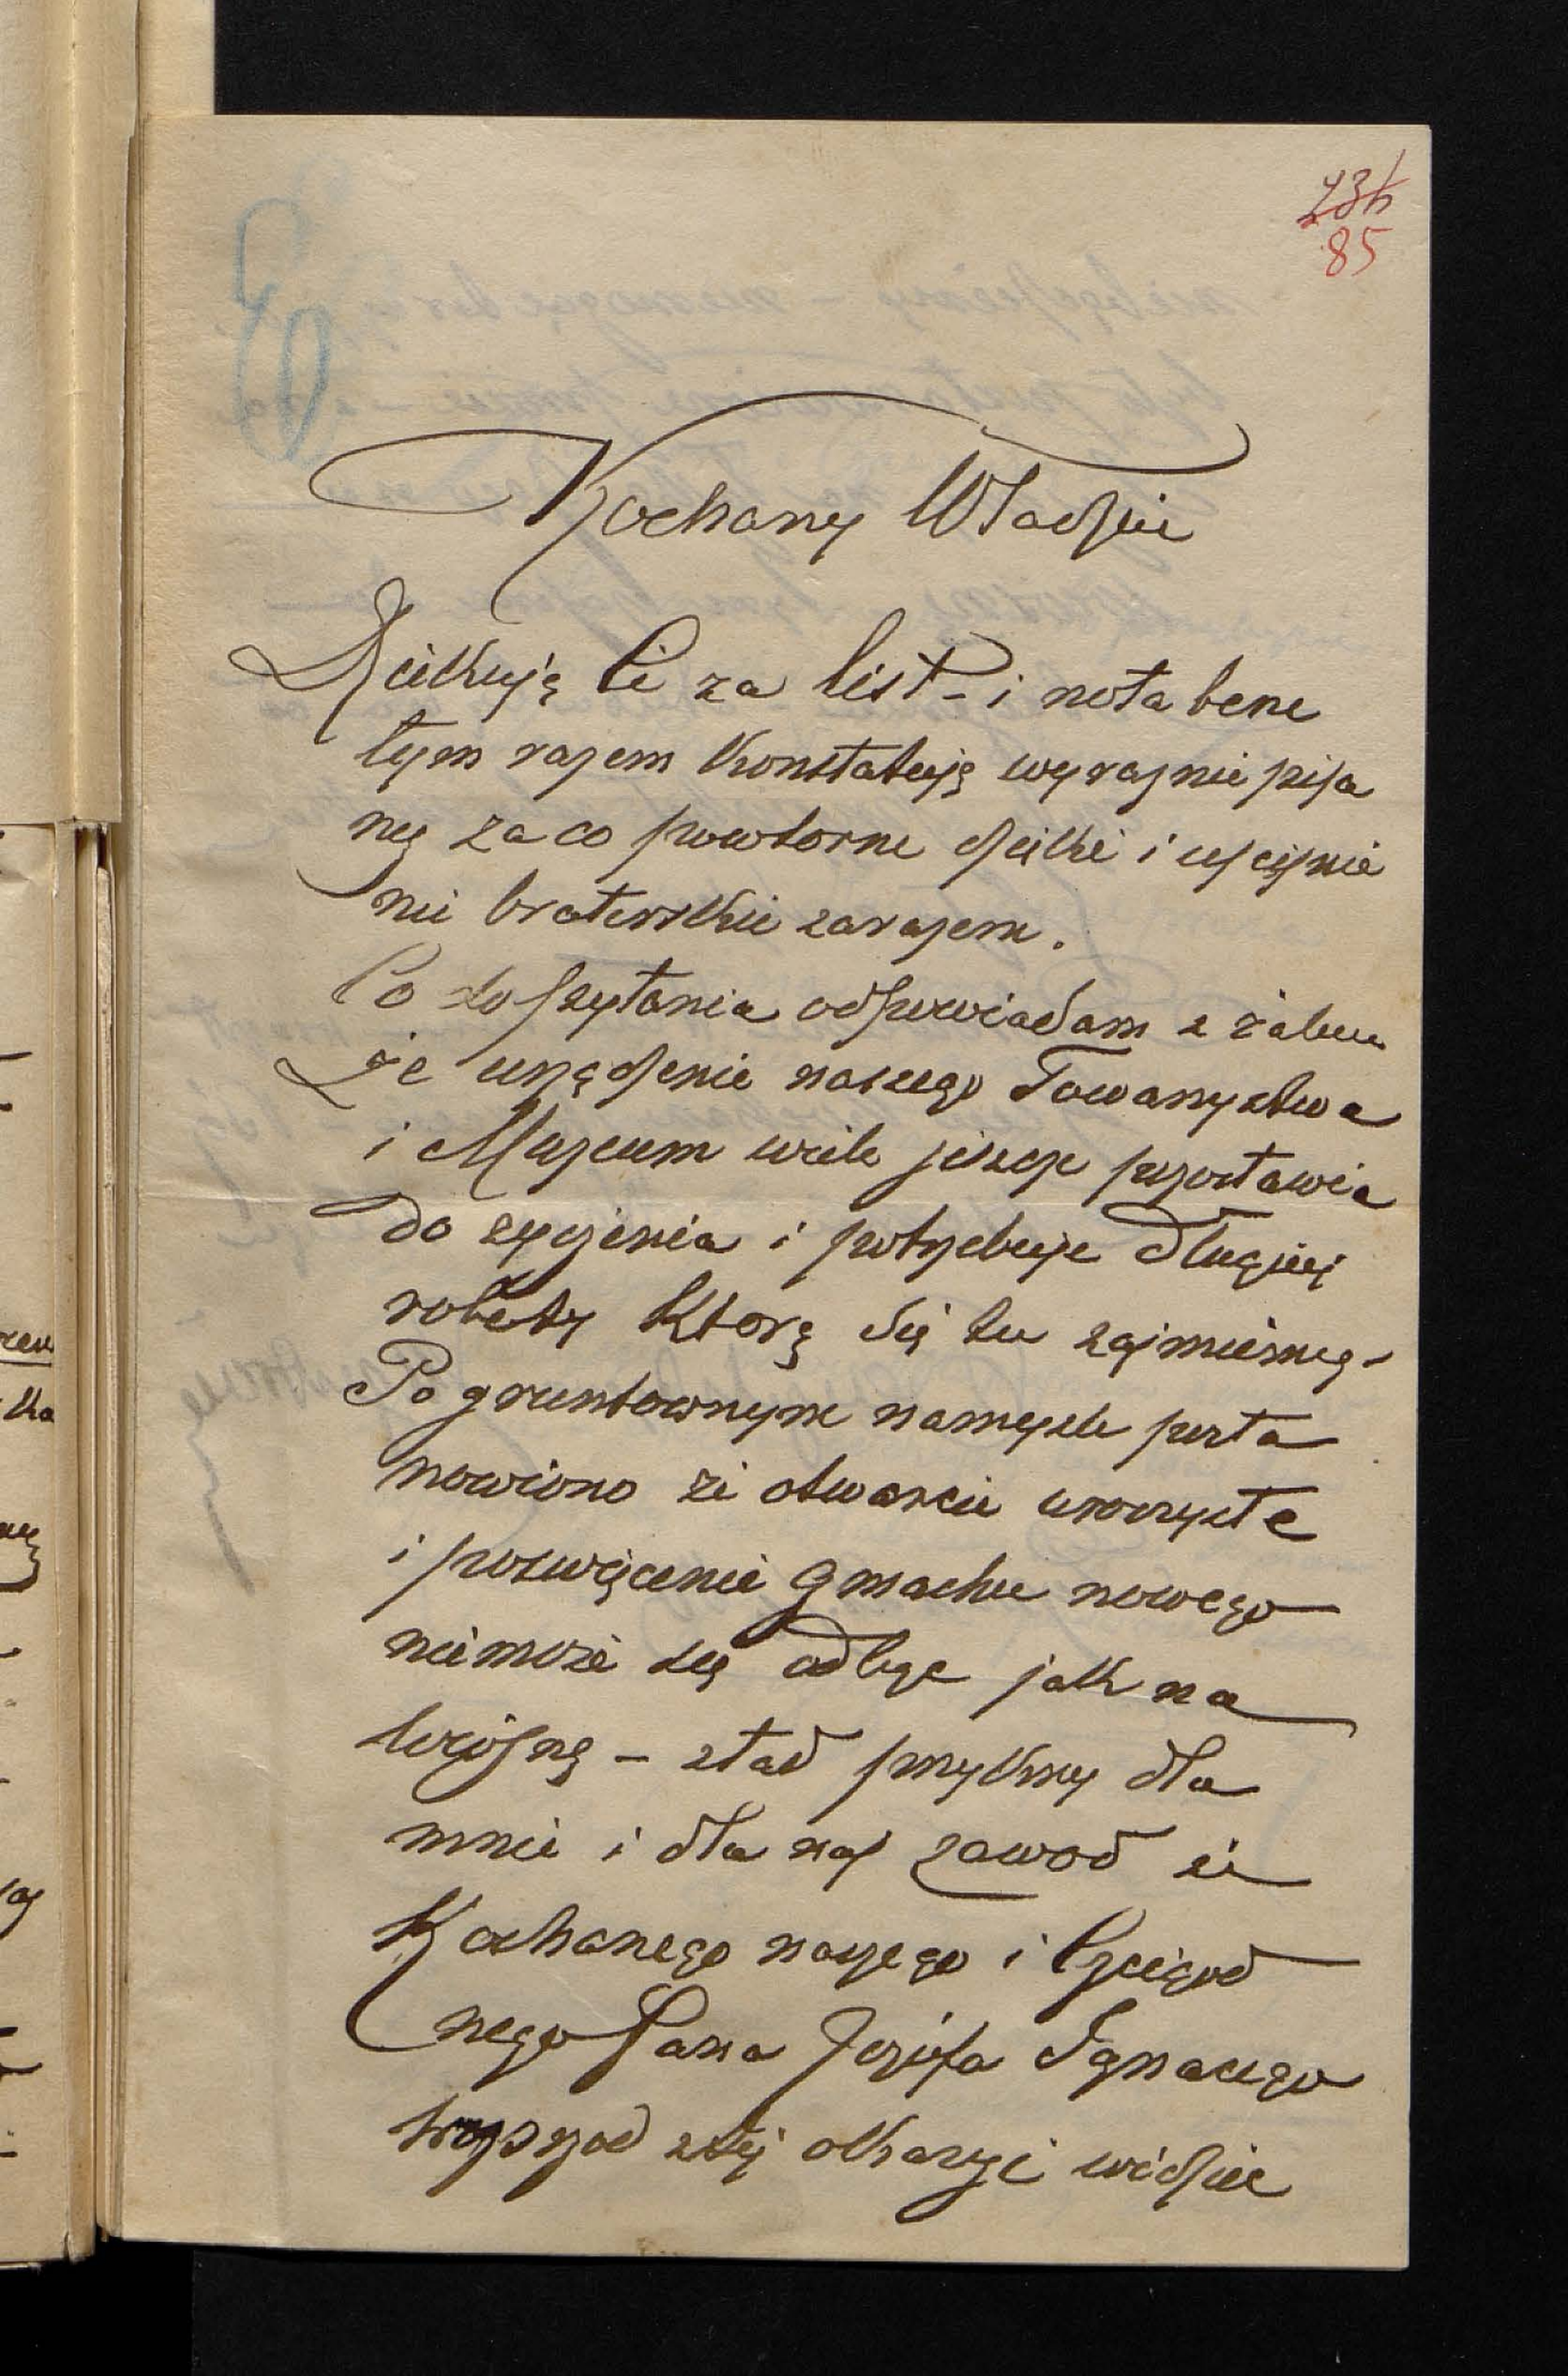 85
Kochany Władziu
Dziękuję Ci za list – i nota bene
tym razem konstatuję wyraznie pisa
ny za co powtorne dzięki i uściśnie
nie braterskie zarazem.
Co do pytania odpowiadam z żalem
że urządzenie naszego Towarzystwa
i Muzeum wiele jeszcze pozostawia
do życzenia i potrzebuje długiej
roboty ktorą się tu zajmiemy –
Po gruntownym namyśle posta
nowiono że otwarcie uroczyste
i poswięcenie gmachu nowego
niemoże się odbyć jak na
wiosnę – ztad przykry dla
mnie i dla nas zawod że
Kochanego naszego i Czcigod
nego Pana Józefa Ignacego
z tej okazyi widzieć